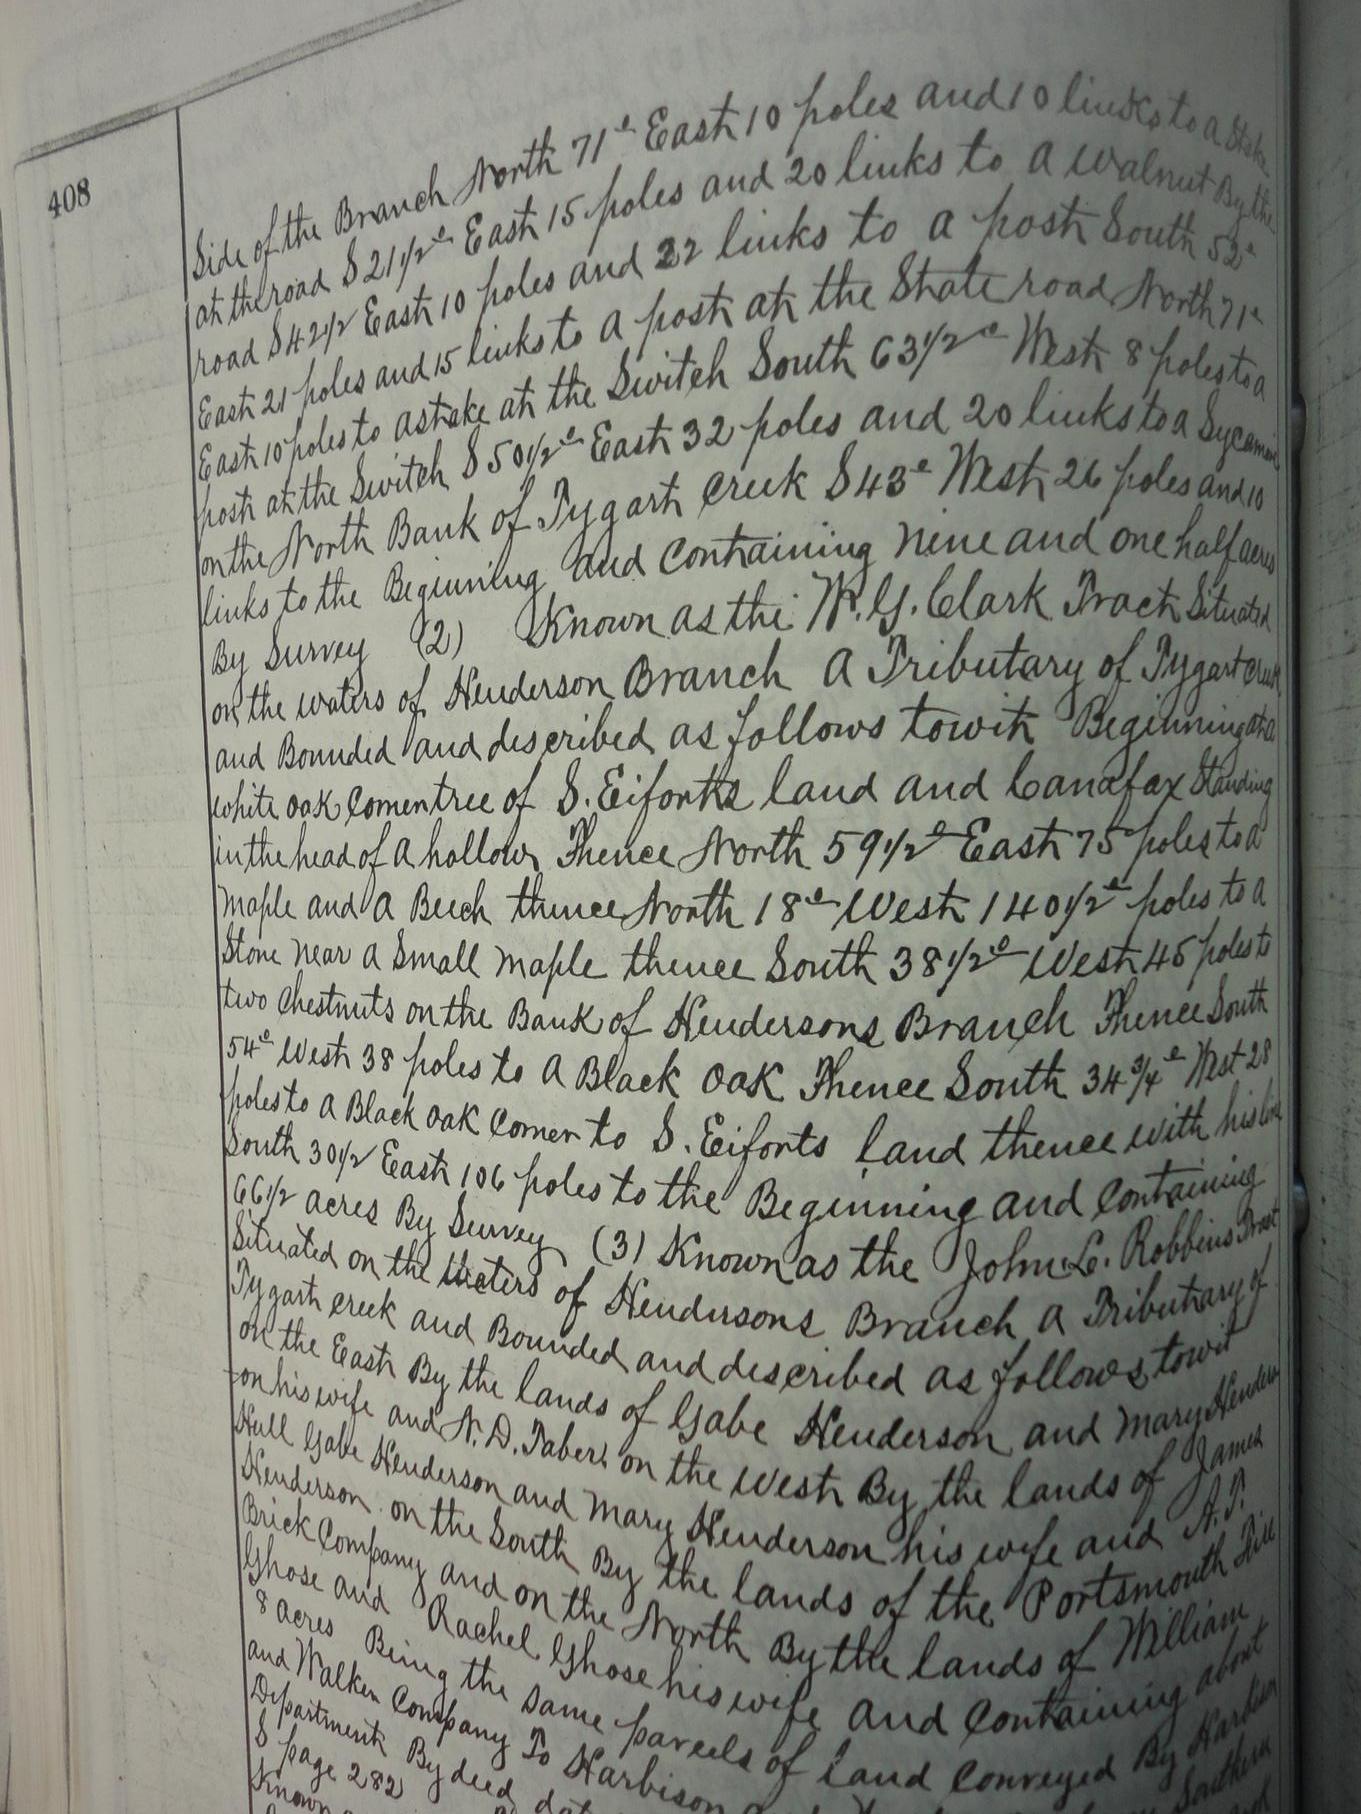 408
Side of the Branch North 71° East 10 poles and 10 links to a Stake
at the road S 21 1/2° East 15 poles and 20 links to a walnut By the
road S 42 1/2 East 10 poles and 22 links to a post South 52°
East 21 poles and 15 links to a post at the State road North 71°
East 10 poles to a stake at the Switch South 63 1/2° West 8 poles to a
post at the Switch S 50 1/2° East 32 poles and 20 links to a Sycamore
on the North Bank of Tygart Creek S 43° West 26 poles and 10
links to the Beginning and containing nine and one half acres
By Survey (2) Known as the W. G. Clark Tract Situated
on the waters of Henderson Branch A Tributary of Tygart Creek
and Bounded and described as follows towit Beginning at a
white oak corner tree of S. Eiforts land and Canafax Standing
in the head of a hollow Thence North 59 1/2° East 75 poles to a
maple and a Beech thence North 18° West 140 1/2° poles to a
Stone near a Small maple thence South 38 1/2° West 45 poles to
two Chestnuts on the Bank of Hendersons Branch Thence South
54° West 38 poles to a Black oak Thence South 34 3/4° West 28
poles to a Black oak corner to S. Eiforts land thence with his line
South 30 1/2 East 106 poles to the Beginning and containing
66 1/2 acres By Survey (3) Known as the John L. Robbins Tract
Situated on the waters of Hendersons Branch a Tributary of
Tygart creek and Bounded and described as follows towit
on the East By the lands of Gabe Henderson and Mary Henders
-on his wife and N. D. Tabers on the West By the lands of James
Hull Gabe Henderson and Mary Henderson his wife and A. T.
Henderson on the South By the lands of the Portsmouth Fire
Brick Company and on the North By the lands of William
Ghose and Rachel Ghose his wife and containing about
8 acres Being the same parcels of land conveyed By Harbison
and Walker Company To Harbison Southern
Department By deed
S page 282
Known